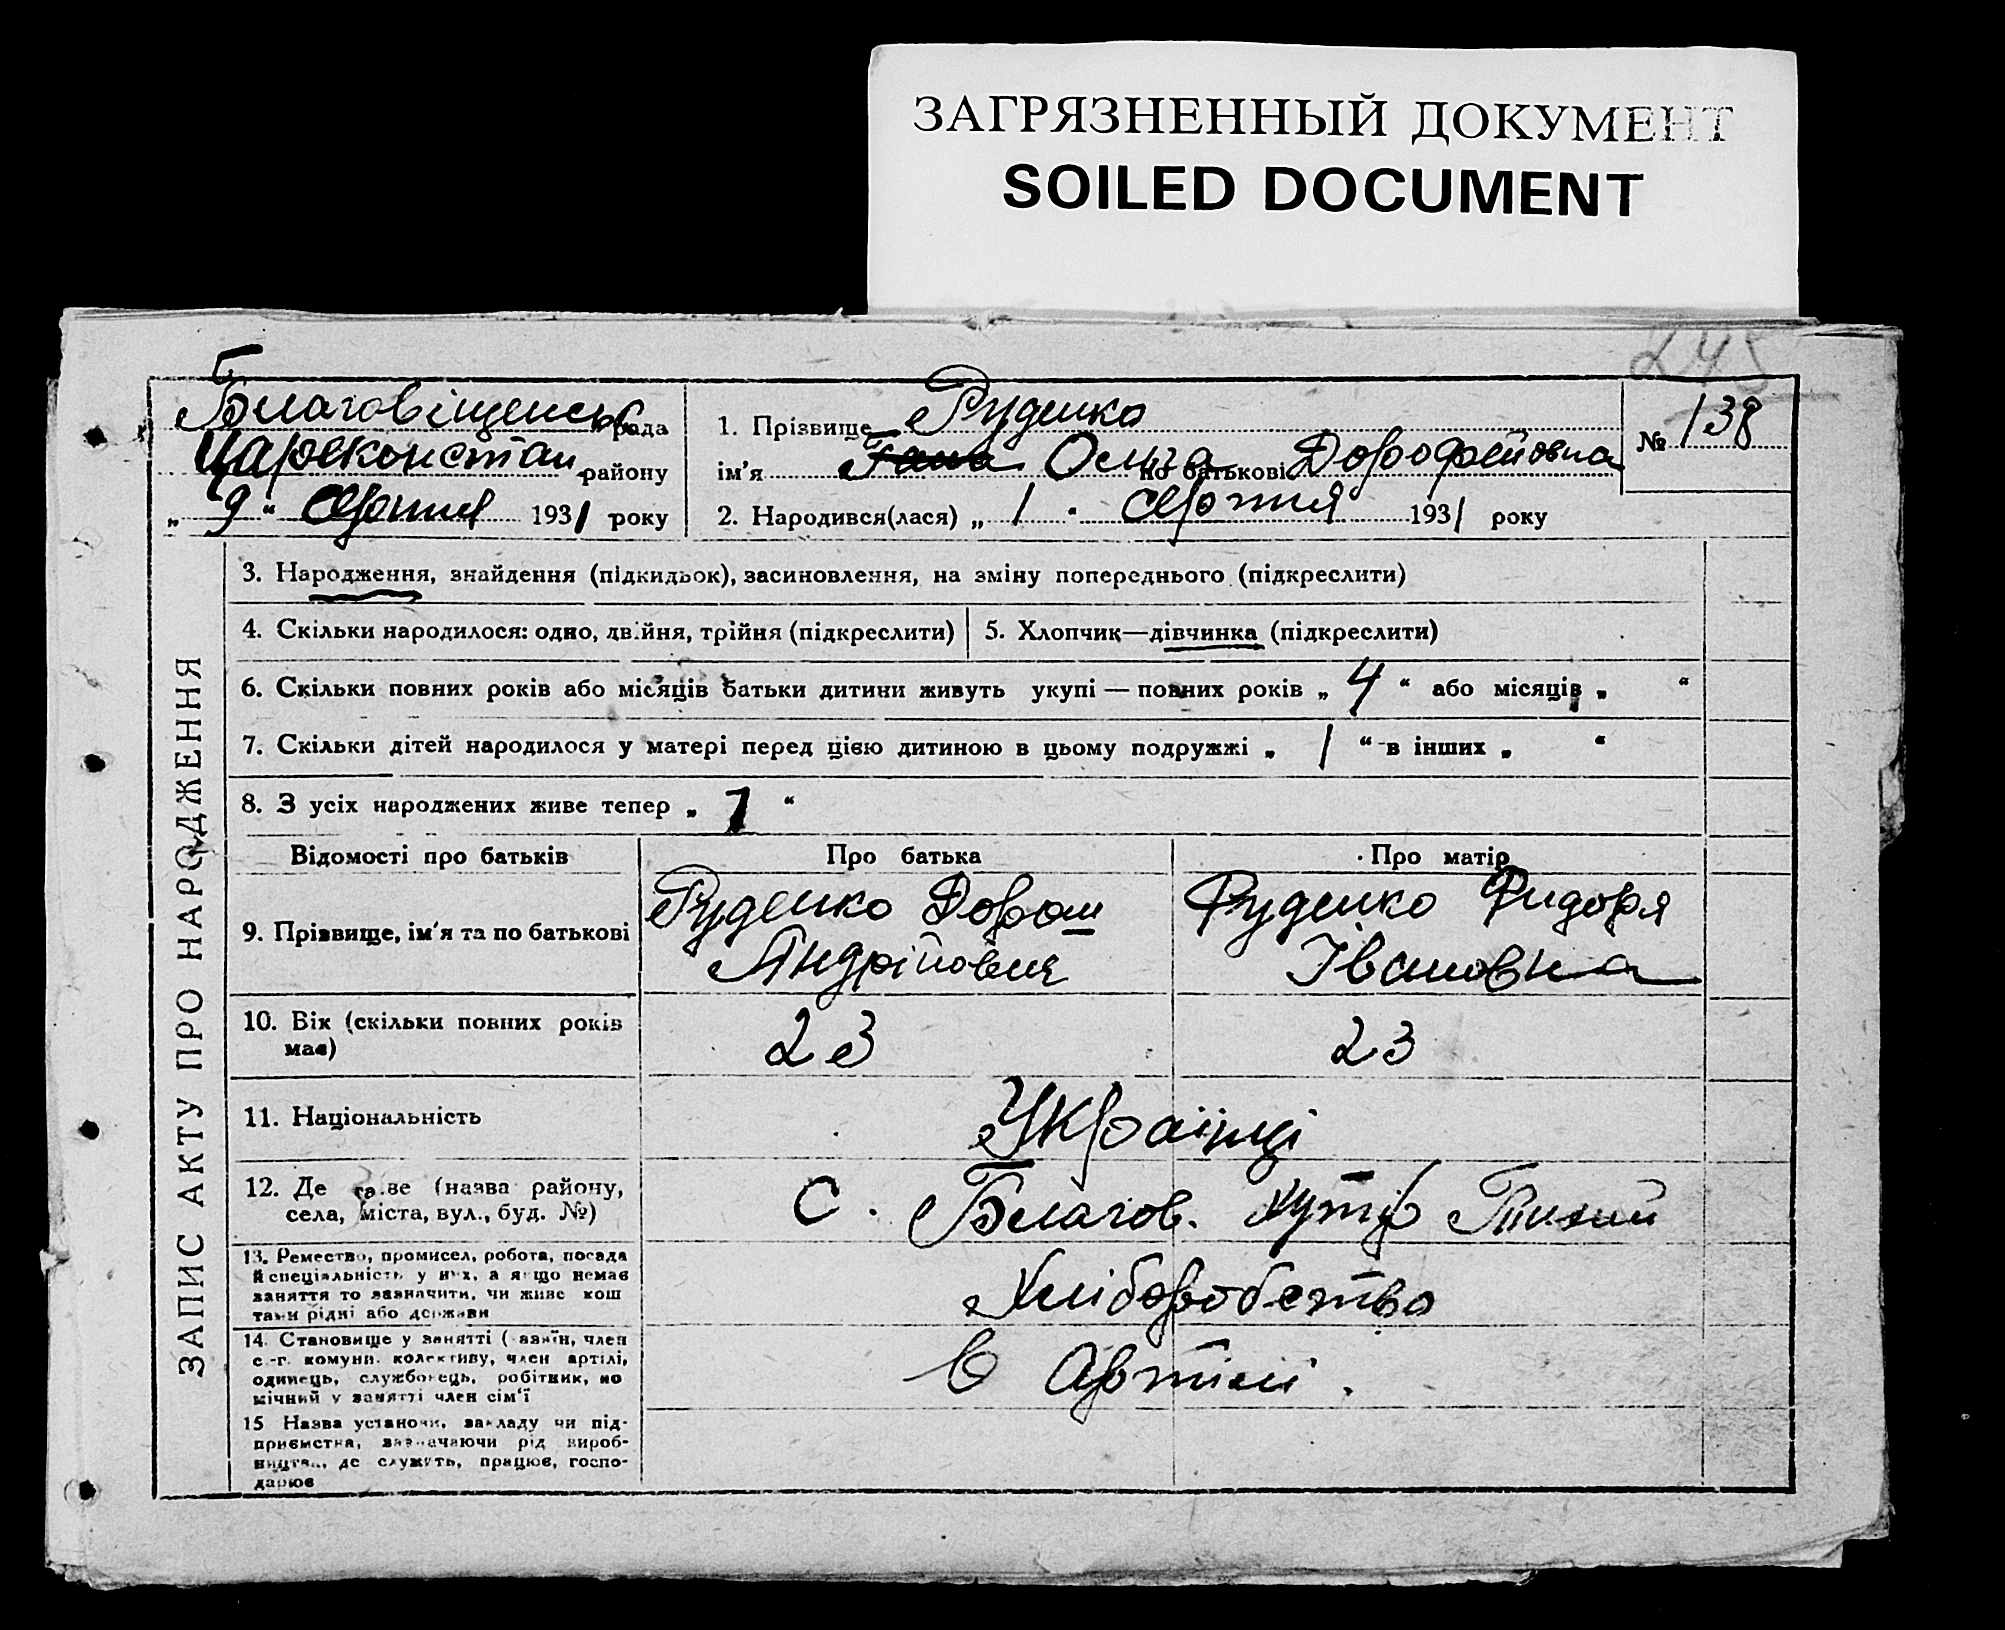 ЗАГРЯЗНЕННЫЙ ДОКУМЕНТ
SOILED DOCUMENT
245
Благовіщенськ рада
Царекконстан. району
„ 9 “ серпня 1931 року
1. Прізвище Руденко
ім'я Ганна Ольга по батькові Дорофейовна
2. Народився(лася) „ 1 . серпня 1931 року
№ 138
ЗАПИС АКТУ ПРО НАРОДЖЕННЯ
3. Народження, знайдення (підкидьок), засиновлення, на зміну попереднього (підкреслити)
4. Скільки народилося: одно, двійня, трійня (підкреслити)
5. Хлопчик—дівчинка (підкреслити)
6. Скільки повних років або місяців батьки дитини живуть укупі — повних років „ 4 “ або місяців „ “
7. Скільки дітей народилося у матері перед цією дитиною в цьому подружжі „ 1 “ в інших „ “
8. З усіх народжених живе тепер „ 1 “
Відомості про батьків
Про батька
Про матір
9. Прізвище, ім'я та по батькові
Руденко Дорош
Андрійович
Руденко Фидоря
Івановна
10. Вік (скільки повних років
має)
23
23
11. Національність
Українці
12. Де живе (назва району,
села, міста, вул., буд. №)
С. Благов. Хутір
13. Ремество, промисел, робота, посада
й спеціяльність у них, а якщо немає
заняття то зазначити, чи живе кош
тами рідні або держави
Хліборобство
14. Становище у занятті (хазяїн, член
с.-г. комуни, колективу, член артілі,
одинець, службовець, робітник, по
мічний у занятті член сім'ї
в Артілі.
15 Назва установи, закладу чи під-
приємства, зазначаючи рід вироб-
ництва, де служить, працює, госпо-
дарює